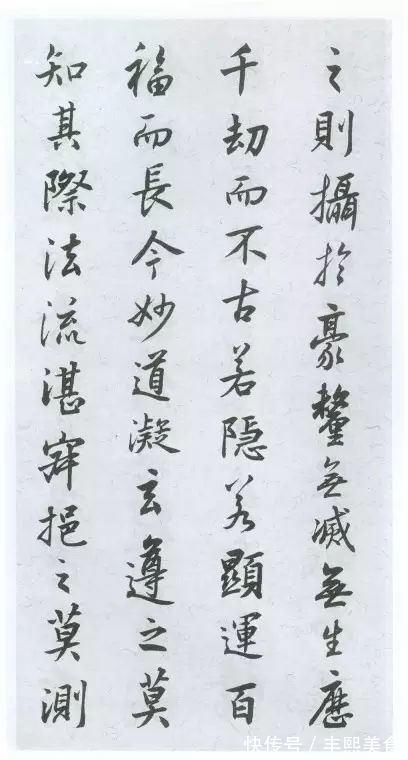 之則攝於豪釐無滅無生應
千劫而不古若隱若顯運百
福而長今妙道凝玄遵之莫
知其際法流湛寂挹之莫測
快传号／丰熙美食